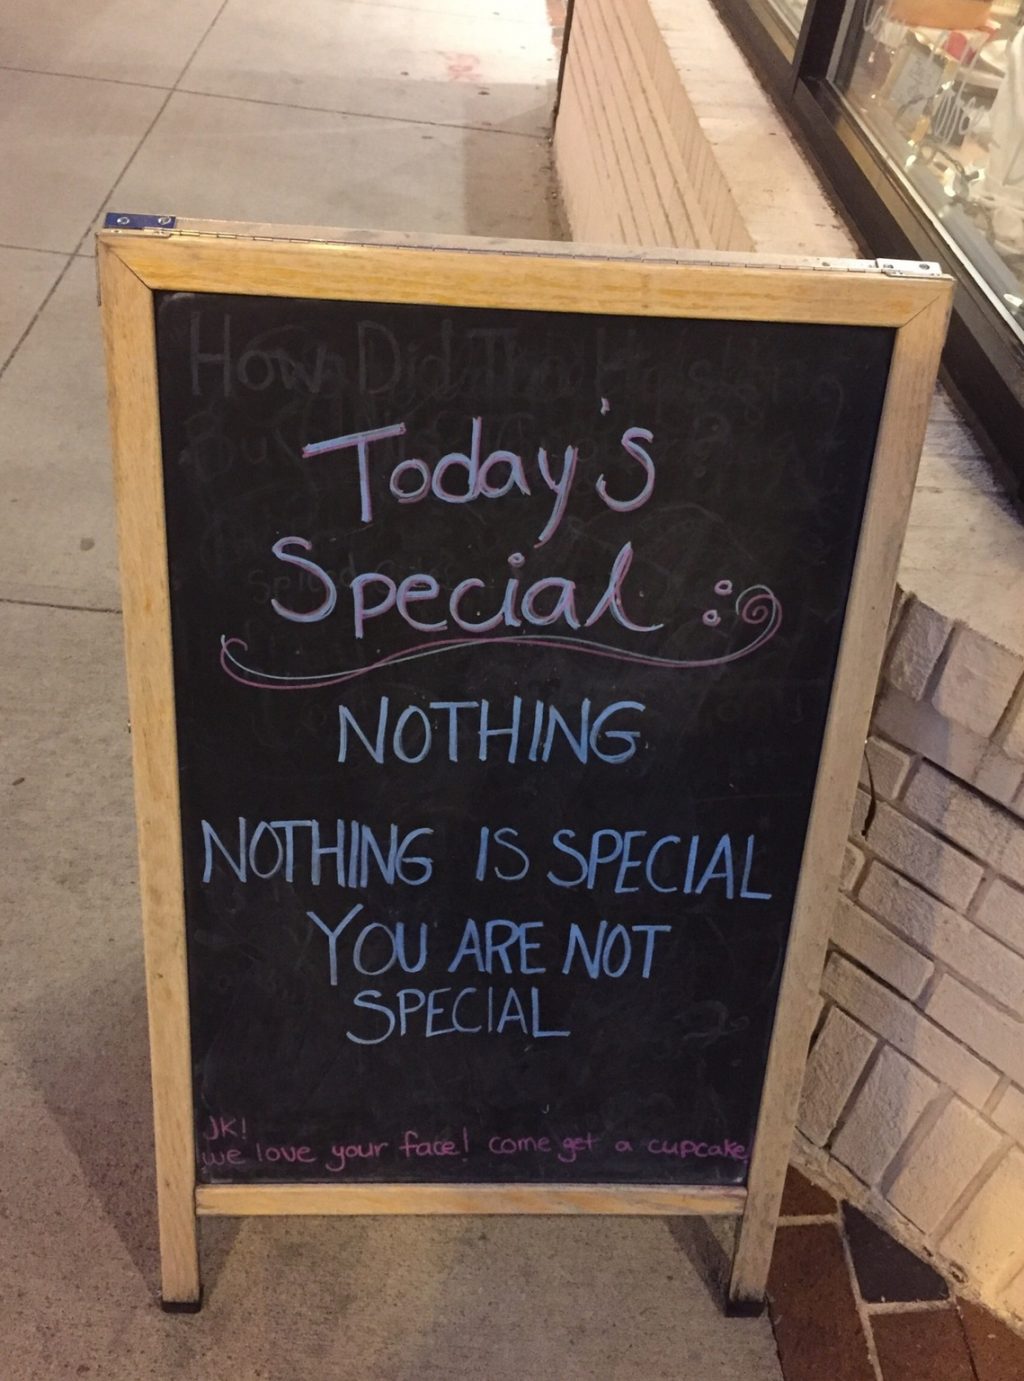 How Did The
Today's
Special:
NOTHING
NOTHING IS SPECIAL
YOU ARE NOT
SPECIAL
JK!
we love your face! come get a cupcake!